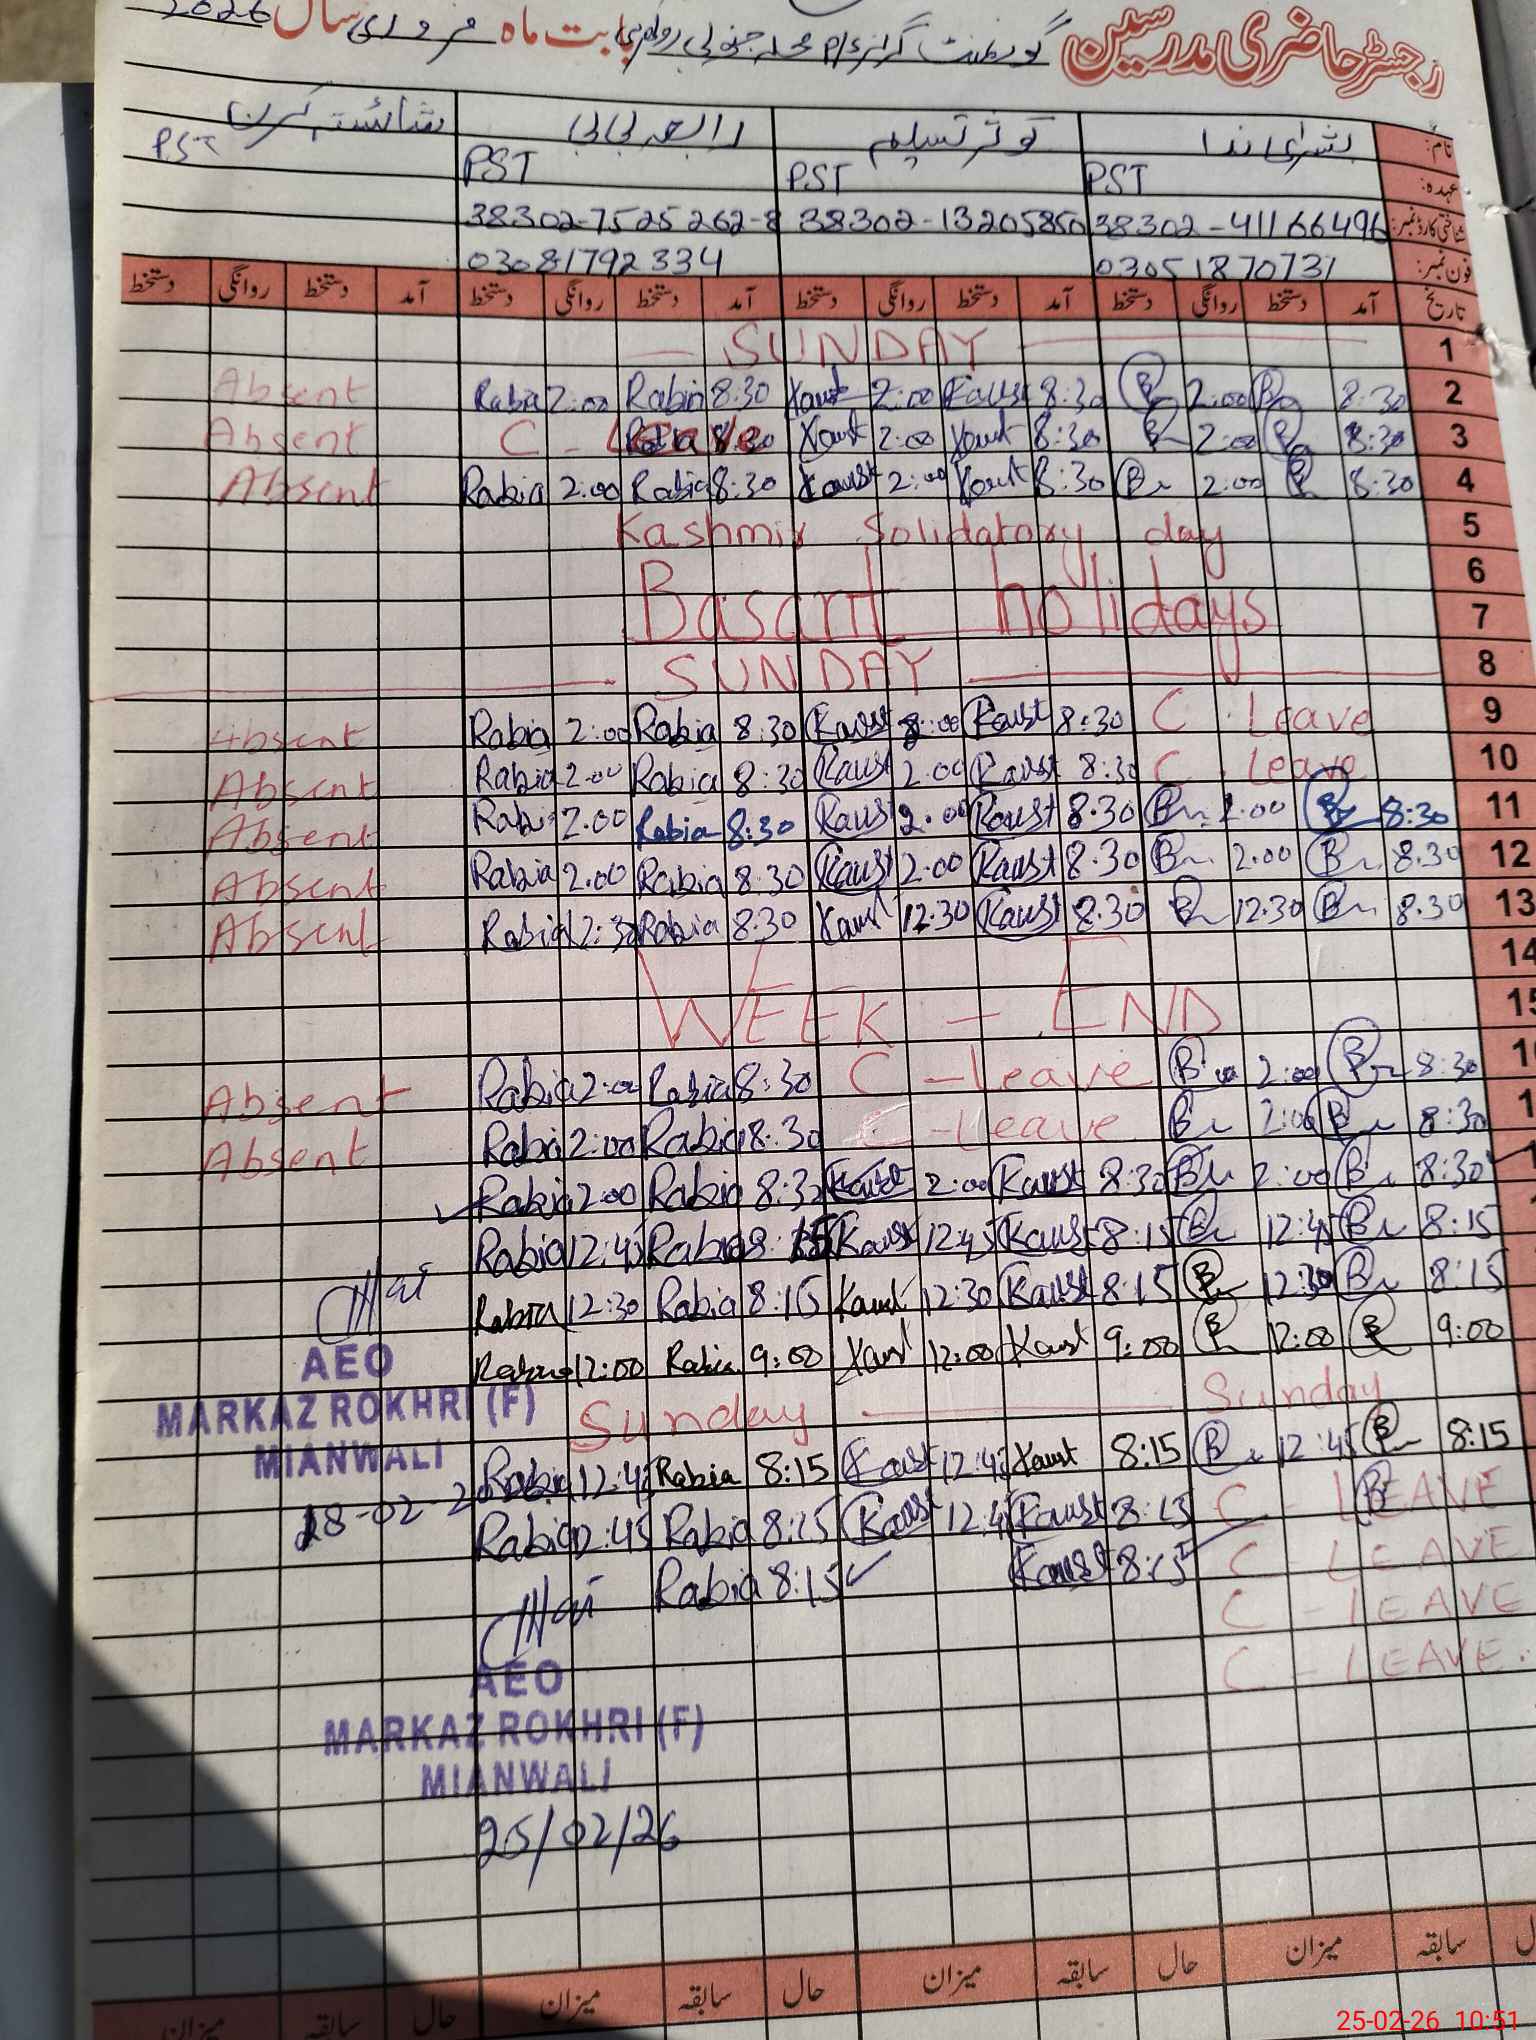 رجسٹر حاضری مدرسین گورنمنٹ گرلز بابت ماہ فروری سال 2026
نام: بشریٰ ندا کوثر تسلیم رابعہ بی بی شائستہ کرن
عہدہ: PST PST PST PST
شناختی کارڈ نمبر: 38302-41166496 38302-13205850 38302-7525262-8
فون نمبر: 03051870731 03081792334
تاریخ آمد دستخط روانگی دستخط آمد دستخط روانگی دستخط آمد دستخط روانگی دستخط آمد دستخط روانگی دستخط
SUNDAY 1
Absent Rabia 2:00 Rabia 8:30 Kaust 2:00 Kaust 8:30 2:00 8:30 2
Absent C - Leave Rabia 8:30 Kaust 2:00 Kaust 8:30 2:00 8:30 3
Absent Rabia 2:00 Rabia 8:30 Kaust 2:00 Kaust 8:30 2:00 8:30 4
Kashmir Solidatory day 5
6
Basant holidays 7
SUNDAY 8
Absent Rabia 2:00 Rabia 8:30 Kaust :00 Kaust 8:30 C. Leave 9
Absent Rabia 2:00 Rabia 8:30 Kaust 2:00 Kaust 8:30 C. Leave 10
Absent Rabi 2.00 Rabia 8:30 Kaust 2.00 Kaust 8.30 2.00 8:30 11
Absent Rabia 2.00 Rabia 8.30 Kaust 2:00 Kaust 8.30 2.00 8.30 12
Absent Rabia 12:30 Rabia 8.30 Kaust 12.30 Kaust 8.30 12.30 8.30 13
14
WEEK - END 15
Absent Rabia 2:00 Rabia 8:30 C - Leave 2:00 8:30
Absent Rabia 2:00 Rabia 8:30 C - Leave 2:00 8:30
Rabia 2:00 Rabia 8:3 Kaust 2:00 Kaust 8:30 2:00 8:30
Rabia 12:45 Rabia 8:15 Kaust 12:45 Kaust 8:15 12:45 8:15
Rabia 12:30 Rabia 8:15 Kaust 12:30 Kaust 8:15 12:30 8:15
Rabia 12:00 Rabia 9:00 Kaust 12:00 Kaust 9:00 12:00 9:00
AEO
MARKAZ ROKHRI (F)
MIANWALI
18-02-2
Sunday Sunday
Rabia 12:45 Rabia 8:15 Kaust 12:45 Kaust 8:15 12:45 8:15
Rabia 12:45 Rabia 8:15 Kaust 12:45 Kaust 8:15 C - LEAVE
Rabia 8:15 Kaust 8:15 C - LEAVE
C - LEAVE
C - LEAVE.
AEO
MARKAZ ROKHRI (F)
MIANWALI
25/02/26
سابقہ میزان حال سابقہ میزان حال سابقہ میزان حال سابقہ میزان
25-02-26 10:51